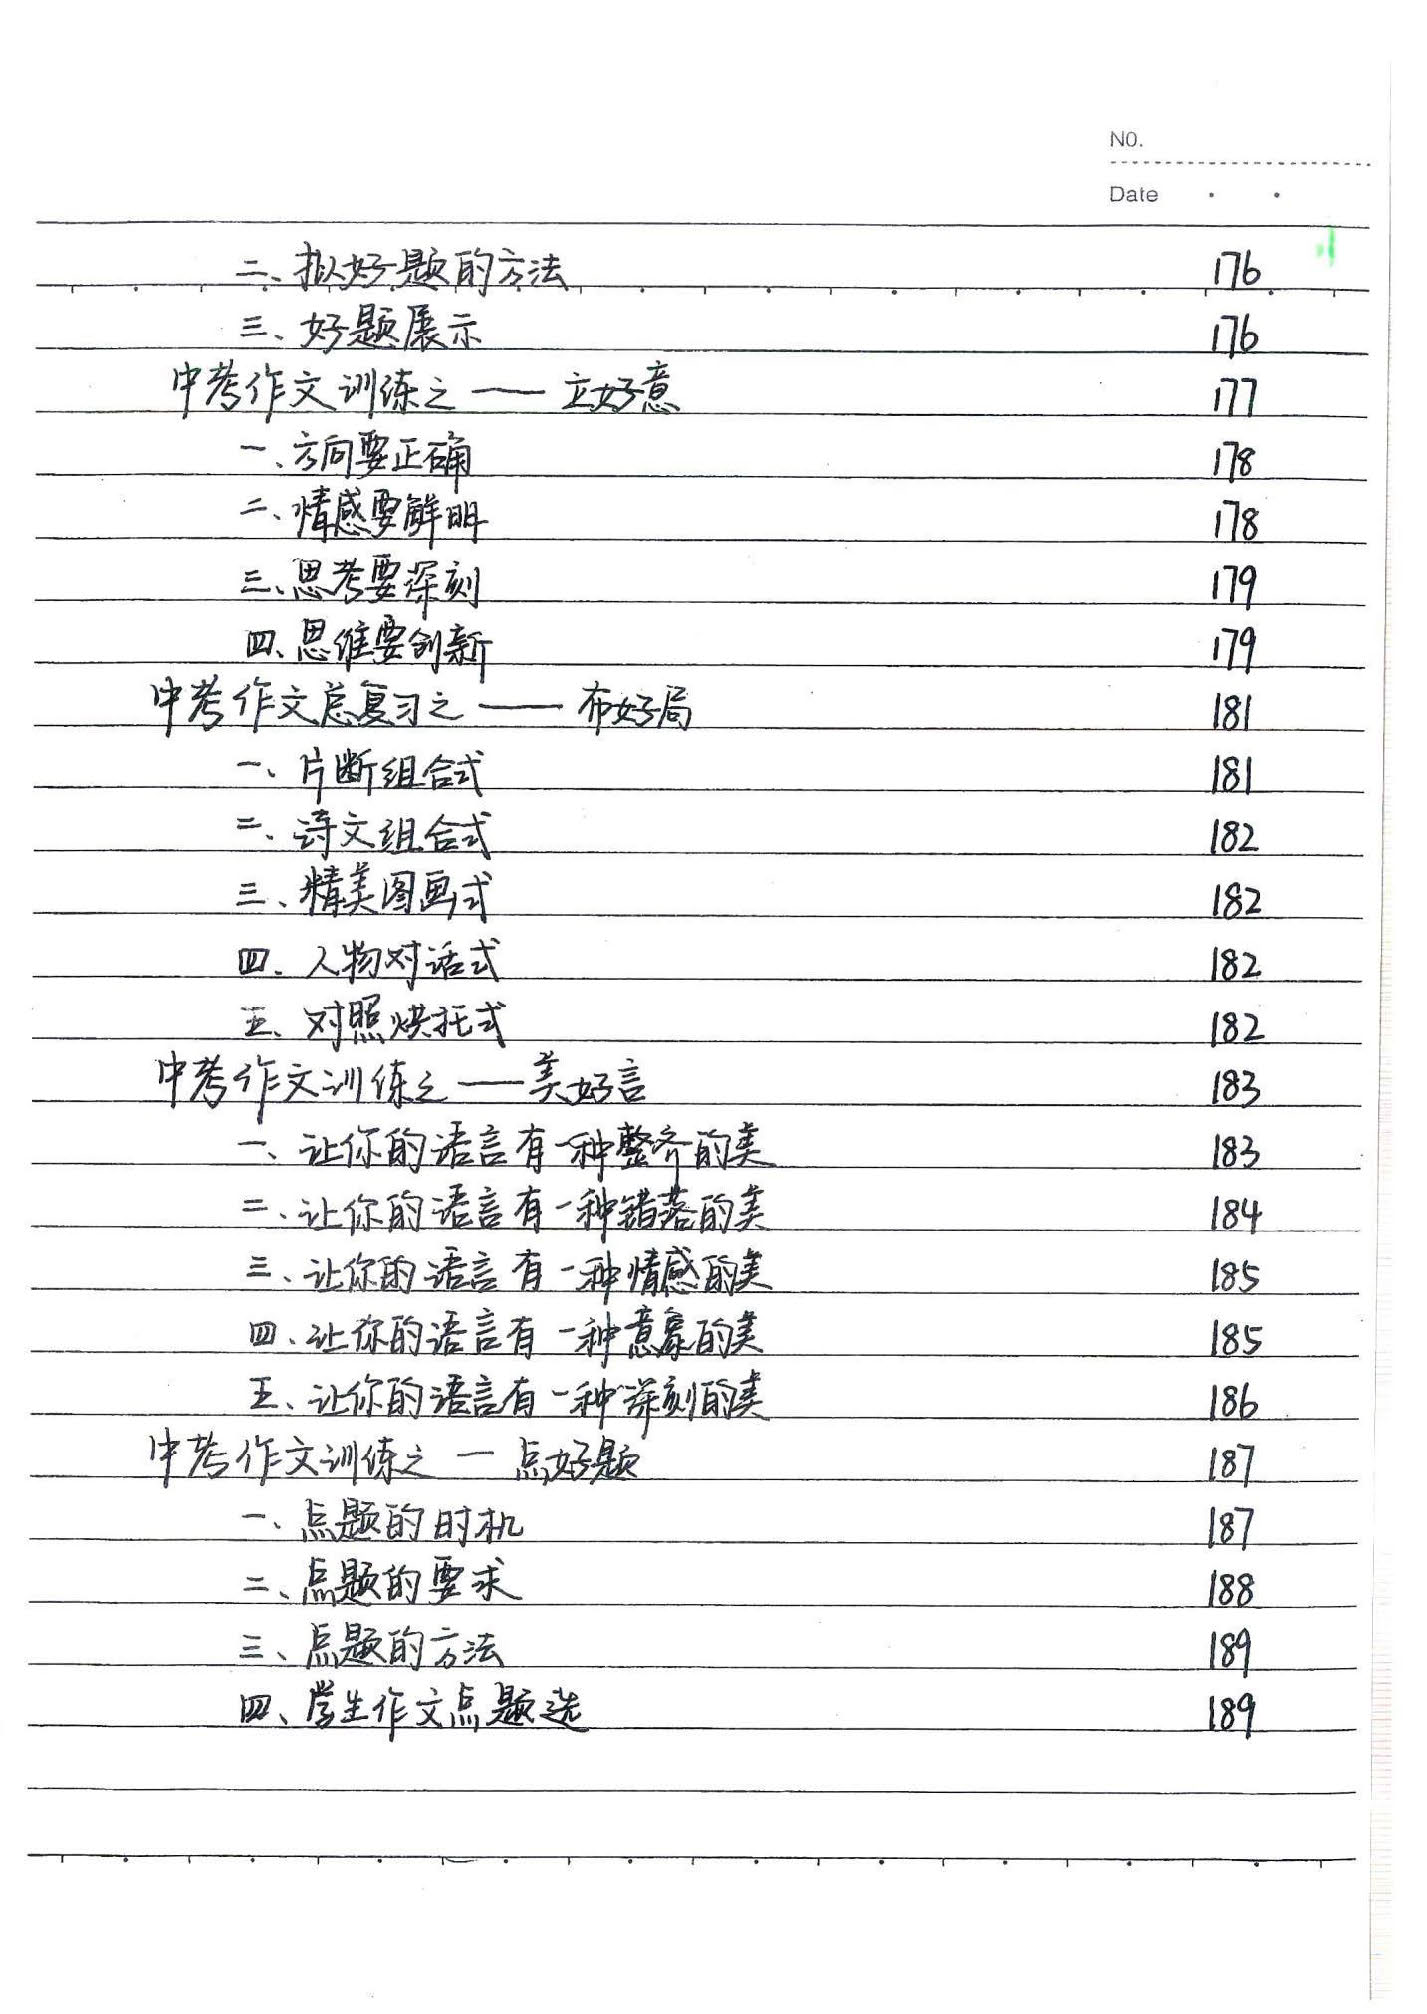 NO.
Date
二、拟好题的方法 176
三、好题展示 176
中考作文训练之——立好意 177
一、方向要正确 178
二、情感要鲜明 178
三、思考要深刻 179
四、思维要创新 179
中考作文总复习之——布好局 181
一、片断组合式 181
二、诗文组合式 182
三、精美图画式 182
四、人物对话式 182
五、对照烘托式 182
中考作文训练之——美好言 183
一、让你的语言有一种整齐的美 183
二、让你的语言有一种错落的美 184
三、让你的语言有一种情感的美 185
四、让你的语言有一种意象的美 185
五、让你的语言有一种深刻的美 186
中考作文训练之—点好题 187
一、点题的时机 187
二、点题的要求 188
三、点题的方法 189
四、学生作文点题选 189